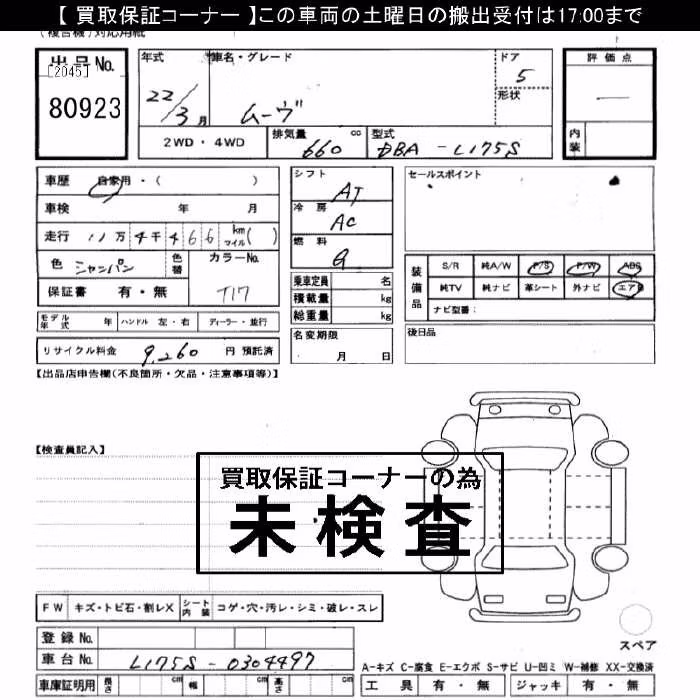 【 買取保証コーナー 】この車両の土曜日の搬出受付は17:00まで
(複合機)対応用紙
出品No.
[2045]
80923
年式
22/3月
車名・グレード
ムーヴ
ドア
5
形状
評価点
—
内装
2WD・4WD
排気量 cc
660
型式
DBA - L175S
車歴 自家用・( )
車検 年 月
走行 11万4千466 km マイル( )
色 シャンパン
色替
カラーNo.
T17
保証書 有・無
モデル年式 年 ハンドル 左・右 ディーラー・並行
リサイクル料金 9,260 円 預託済
シフト
AT
冷房
AC
燃料
G
乗車定員 名
積載量 kg
総重量 kg
名変期限
月 日
セールスポイント
装備品
S/R 純A/W P/S P/W ABS
純TV 純ナビ 革シート 外ナビ エアB
ナビ型番:
後日品
【出品店申告欄(不良箇所・欠品・注意事項等)】
【検査員記入】
買取保証コーナーの為
未検査
FW キズ・トビ石・割レX シート内装 コゲ・穴・汚レ・シミ・破レ・スレ
登録No.
車台No. L175S - 0304497
車庫証明用 長さ cm 幅 cm 高さ cm
スペア
A-キズ C-腐食 E-エクボ S-サビ U-凹ミ W-補修 XX-交換済
工具 有・無 ジャッキ 有・無